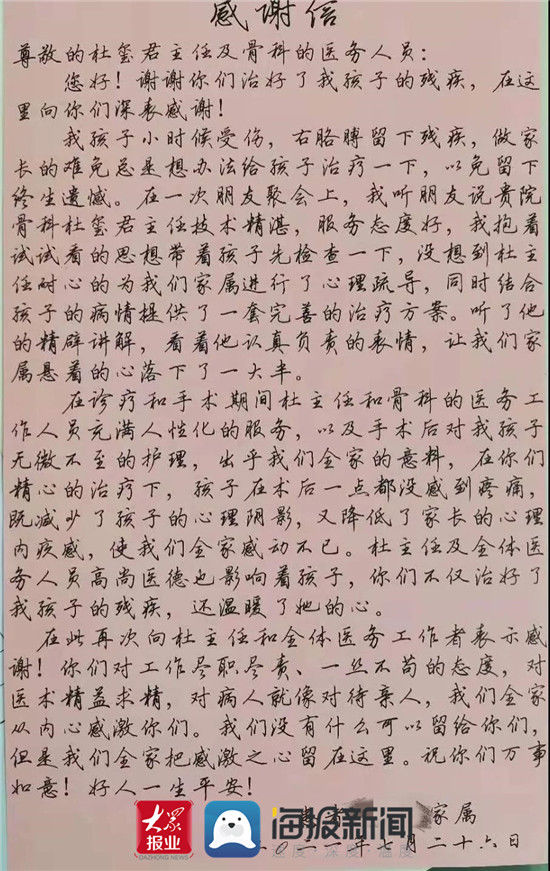 感谢信
尊敬的杜玺君主任及骨科的医务人员：
您好！谢谢你们治好了我孩子的残疾，在这
里向你们深表感谢！
我孩子小时候受伤，右胳膊留下残疾，做家
长的难免总是想办法给孩子治疗一下，以免留下
终生遗憾。在一次朋友聚会上，我听朋友说贵院
骨科杜玺君主任技术精湛，服务态度好，我抱着
试试看的思想带着孩子先检查一下，没想到杜主
任耐心的为我们家属进行了心理疏导，同时结合
孩子的病情提供了一套完善的治疗方案。听了他
的精辟讲解，看着他认真负责的表情，让我们家
属悬着的心落下了一大半。
在诊疗和手术期间杜主任和骨科的医务工
作人员充满人性化的服务，以及手术后对我孩子
无微不至的护理，出乎我们全家的意料，在你们
精心的治疗下，孩子在术后一点都没感到疼痛，
既减少了孩子的心理阴影，又降低了家长的心理
内疚感，使我们全家感动不已。杜主任及全体医
务人员高尚医德也影响着孩子，你们不仅治好了
我孩子的残疾，还温暖了她的心。
在此再次向杜主任和全体医务工作者表示感
谢！你们对工作尽职尽责、一丝不苟的态度，对
医术精益求精，对病人就像对待亲人，我们全家
从内心感激你们。我们没有什么可以留给你们，
但是我们全家把感激之心留在这里。祝你们万事
如意！好人一生平安！
家属
二〇二一年七月二十六日
大众
报业
DAZHONG NEWS
海报新闻
速度 深度 温度